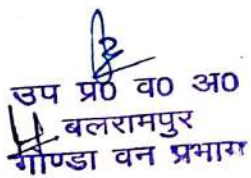 उप प्र0 व0 अ0
बलरामपुर
गोण्डा वन प्रभाग